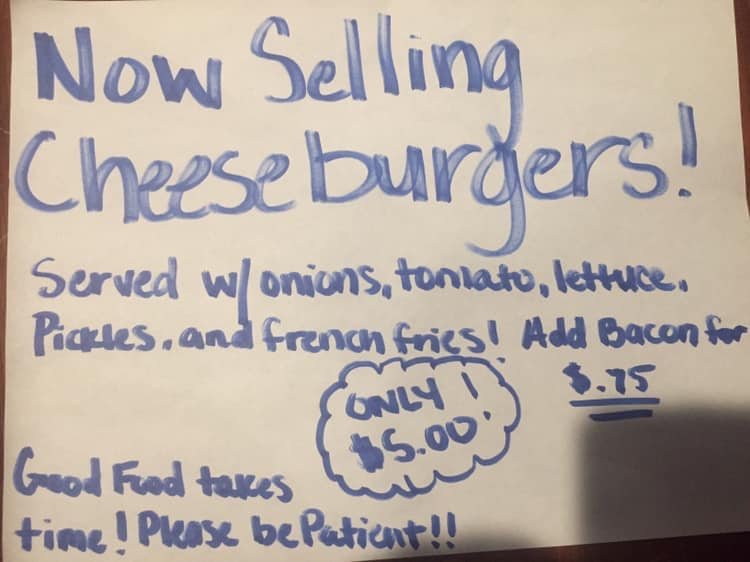 Now Selling
Cheeseburgers!
Served w/ onions, tomato, lettuce,
Pickles, and french fries! Add Bacon for
$.75
ONLY!
$5.00
Good Food takes
time! Please be Patient!!